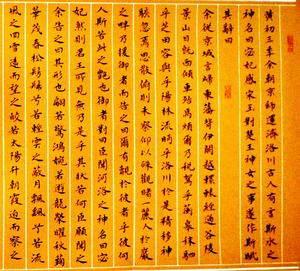 黃初三年余朝京師還濟洛川古人有言斯水之
神名曰宓妃感宋玉對楚王神女之事遂作斯賦
其辭曰
余從京域言歸東藩背伊闕越轘轅經通谷陵
景山日既西傾車殆馬煩爾乃稅駕乎蘅皋秣駟
乎芝田容與乎陽林流眄乎洛川於是精移神
駭忽焉思散俯則未察仰以殊觀睹一麗人於巖
之畔乃援御者而告之曰爾有覿於彼者乎彼何
人斯若此之艷也御者對曰臣聞河洛之神名曰宓
妃然則君王所見無乃是乎其狀若何臣願聞之
余告之曰其形也翩若驚鴻婉若遊龍榮曜秋菊
華茂春松髣髴兮若輕雲之蔽月飄颻兮若流
風之迴雪遠而望之皎若太陽升朝霞迫而察之